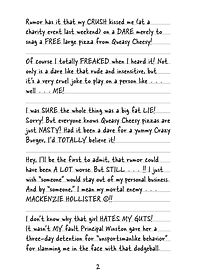 Rumor has it that my CRUSH kissed me (at a
charity event last weekend) on a DARE merely to
snag a FREE large pizza from Queasy Cheesy!
Of course I totally FREAKED when I heard it! Not
only is a dare like that rude and insensitive, but
it's a very cruel joke to play on a person like . . .
well . . . ME!
I was SURE the whole thing was a big fat LIE!
Sorry! But everyone knows Queasy Cheesy pizzas are
just NASTY! Had it been a dare for a yummy Crazy
Burger, I'd TOTALLY believe it!
Hey, I'll be the first to admit, that rumor could
have been A LOT worse. But STILL . . . !! I just
wish "someone" would stay out of my personal business.
And by "someone," I mean my mortal enemy . . .
MACKENZIE HOLLISTER ☹!!
I don't know why that girl HATES MY GUTS!
It wasn't MY fault Principal Winston gave her a
three-day detention for "unsportsmanlike behavior"
for slamming me in the face with that dodgeball
2